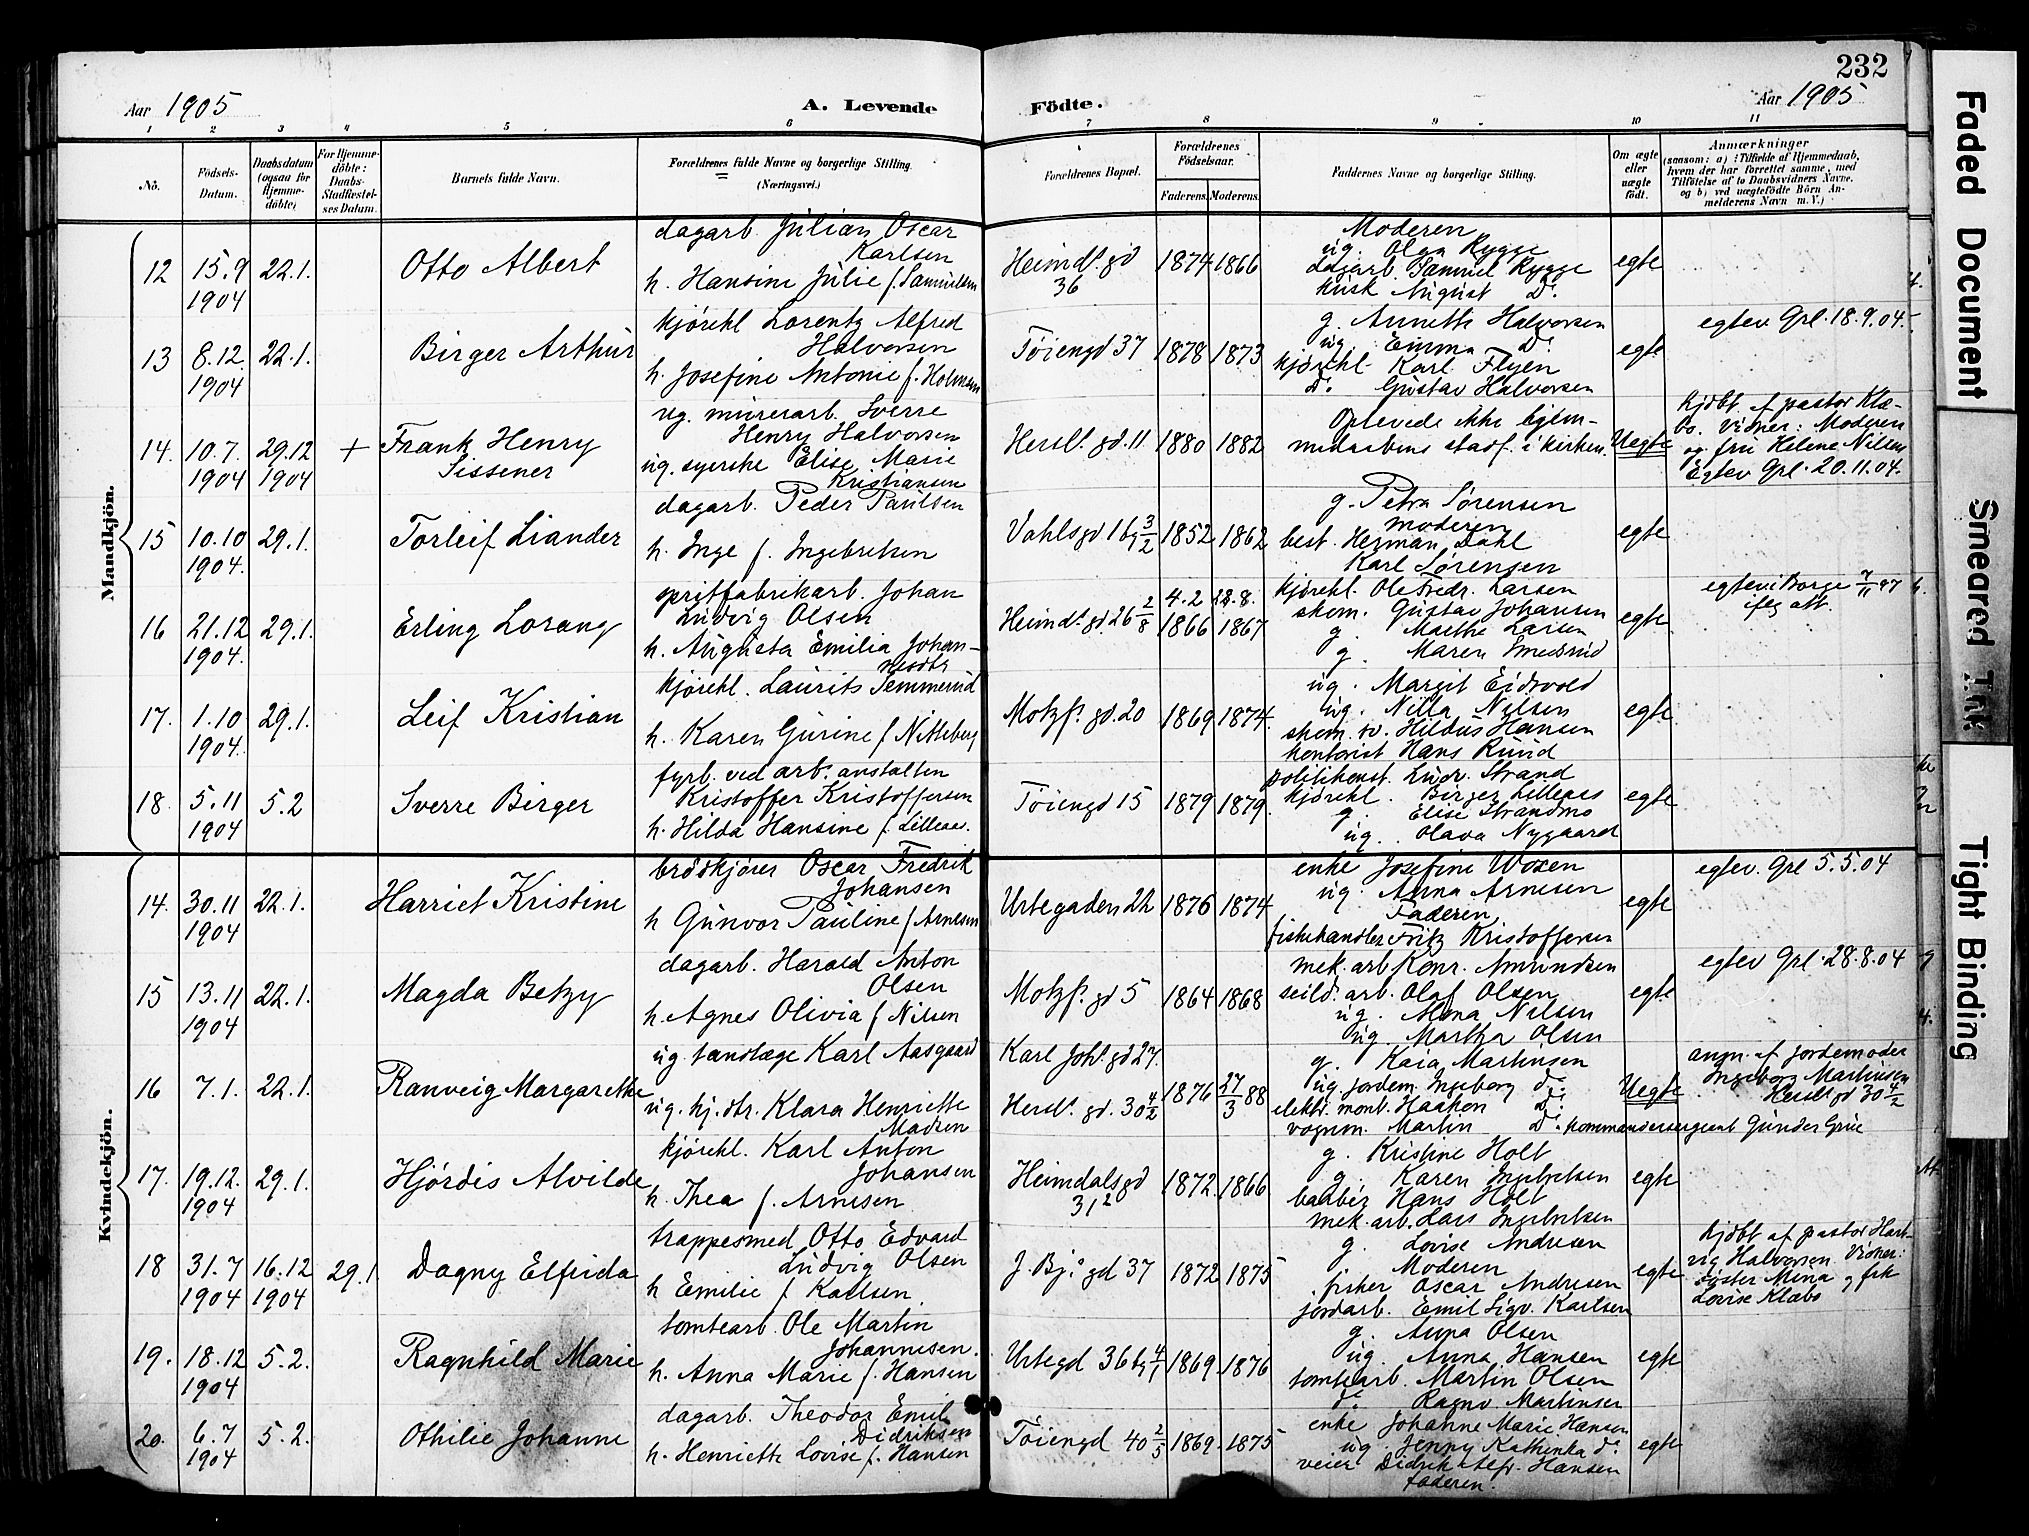 232
Aar 1905 A. Levende Födte. Aar 1905
1 2 3 4 5 6 7 8 9 10 11
No. Födsels-Datum. Daabsdatum (ogsaa för Hjemme-döbte) For Hjemme-döbte: Daabs-Stadfæstel-ses Datum. Barnets fulde Navn. Forældrenes fulde Navne og borgerlige Stilling. (Næringsvei.) Forældrenes Bopæl. Forældrenes Födselsaar. Faderens. Moderens. Faddernes Navne og borgerlige Stilling. Om ægte eller uægte födt. Anmærkninger (saasom: a) i Tilfælde af Hjemmedaab, hvem der har forrettet samme, med Tilföielse af to Daabsvidners Navne, og b) ved uægtefödte Börn An-melderens Navn m. V.)
Mandkjön.
12 15.9 1904 22.1. Otto Albert
dagarb. Julian Oscar
Karlsen
h. Hansine Julie f. Samuelsen
Heimdl. gd 36 1874 1866
Moderen
ug. Olga Rygge
dagarb. Samuel Rygge
kusk August Do.
egte
13 8.12 1904 22.1. Birger Arthur
kjørekl Lorentz Alfred
Halvorsen
h. Josefine Antonie f. Holmsen
Töiengd 37 1878 1873
g. Annette Halvorsen
ug. Emma Do.
kjørekl. Karl Flyen
Do. Gustav Halvorsen
egte
egtev. Grl. 18.9.04.
14. 10.7. 1904 29.12 1904 + Frank Henry
Sissener
ug. murerarb. Sverre
Henry Halvorsen
ug. syerske Elise Marie
Kristiansen
Hersl. gd. 11 1880 1882
Oplevede ikke hjem-
medaabens stadf. i kirken.
Uegte
hjdbt. af pastor Klæ-
bo. Vidner: Moderen
og fru Helene Nilsen
Egtev Grl. 20.11.04.
15 10.10 1904. 29.1. Torleif Liander
dagarb. Peder Paulsen
h. Inge f. Ingebretsen
Vahlsgd 16 3/2 1852 1862
g. Petra Sørensen
Moderen
best. Herman Dahl
Karl Sørensen
egte
16 21.12 1904. 29.1. Erling Lorang
spritfabrikarb. Johan
Ludvig Olsen
h. Augusta Emilia Johan-
nesdtr
Heimdl. gd. 26 2/8 4.2 1866 22.8. 1867
kjørekl. Ole Fredr. Larsen
skom. Gustav Johansen
g. Marthe Larsen
g. Maren Smedsrud
egte
egtev i Borge 7/11 97
iføg att.
17. 1.10 1904. 29.1. Leif Kristian
kjørekl. Laurits Temmerud
h. Karen Gurine f Nitteberg
Motzf. gd. 20 1869 1874.
ug. Margit Eidsvold
ug. Nilla Nilsen
skom. sv. Hildus Hansen
kontorist Hans Ruud
egte.
18. 5.11 1904 5.2 Sverre Birger
fyrb. ved arb. anstalten
Kristoffer Kristoffersen
h. Hilda Hansine f. Lilleaas.
Töiengd 15 1879 1879.
politikonst. Ludv. Strand
kjørekl. Birger Lilleaas
g. Elise Strandmo
ug. Olava Nygaard
egte
Kvindekjön.
14. 30.11 1904 22.1. Harriet Kristine
brödkjører Oscar Fredrik
Johansen
h Gunvor Pauline f Arnesen
Urtegaden 22 1876 1874
enke Josefine Woxen
ug. Anna Arnesen
Faderen
fiskehandler Fritz Kristoffersen
egte
egtev. Grl 5.5.04
15 13.11 1904 22.1. Magda Betzy
dagarb. Harald Anton
Olsen
h. Agnes Olivia f Nilsen
Motzf. gd 5 1864 1868
mek. arb. Konr. Amundsen
seild. arb. Olaf Olsen
ug. Alma Nilsen
ug Martha Olsen
egte
egtev Grl. 28.8.04
16 7.1. 22.1. Ranveig Margarethe
ug. tandlæge Karl Aasgaard
ug. hj. dtr. Klara Henriette
Madsen
Karl Johs. gd 27.
Hersl. gd. 30 4/2 1876 27/3 88
g. Kaia Martinsen
ug. jordem. Ingeborg do.
elektr. mont. Haakon Do.
vognm. Martin Do. kommandersergeant Gunder Grue
Uegte
anm. af jordemoder
Ingeborg Martinsen
Hersl. gd 30 4/2
17. 19.12. 1904 29.1. Hjördis Alvilde
kjørekl. Karl Anton
Johansen
h. Thea f. Arnesen
Heimdalsgd 31 2 1872. 1866
g. Kristine Holt
g. Karen Ingebretsen
Hans Holt
mek. arb. Lars Ingebretsen
egte
18 31.7 1904 16.12 1904 29.1 Dagny Elfrida
trappesmed Otto Edvard
Ludvig Olsen
h Emilie f Karlsen
J. Bj. gd 37 1872 1875
g. Lovise Andresen
Moderen
fisker Oscar Andresen
jordarb. Emil Sigv. Karlsen
egte
hjdbt af pastor Hart-
vig Halvorsen. Vidner:
söster Mina og frk
Lovise Klæbo
19. 18.12 1904 5.2. Ragnhild Marie
tomtearb. Ole Martin
Johannesen.
h. Anna Marie f. Hansen
Urtegd 36 4/1 1869 1876
g. Anna Olsen
ug. Anna Hansen
tomtearb. Martin Olsen
do. Ragnv Martinsen
egte
20. 6.7 1904 5.2. Othilie Johanne
dagarb. Theodor Emil
Didriksen
h. Henriette Lovise f. Hansen
Töiengd 40 2/5 1869. 1875
enke Johanne Marie Hansen
ug Jenny Kathinka do.
veier Didrik Alfr. Hansen
faderen.
egte
Faded Document
Smeared Ink
Tight Binding